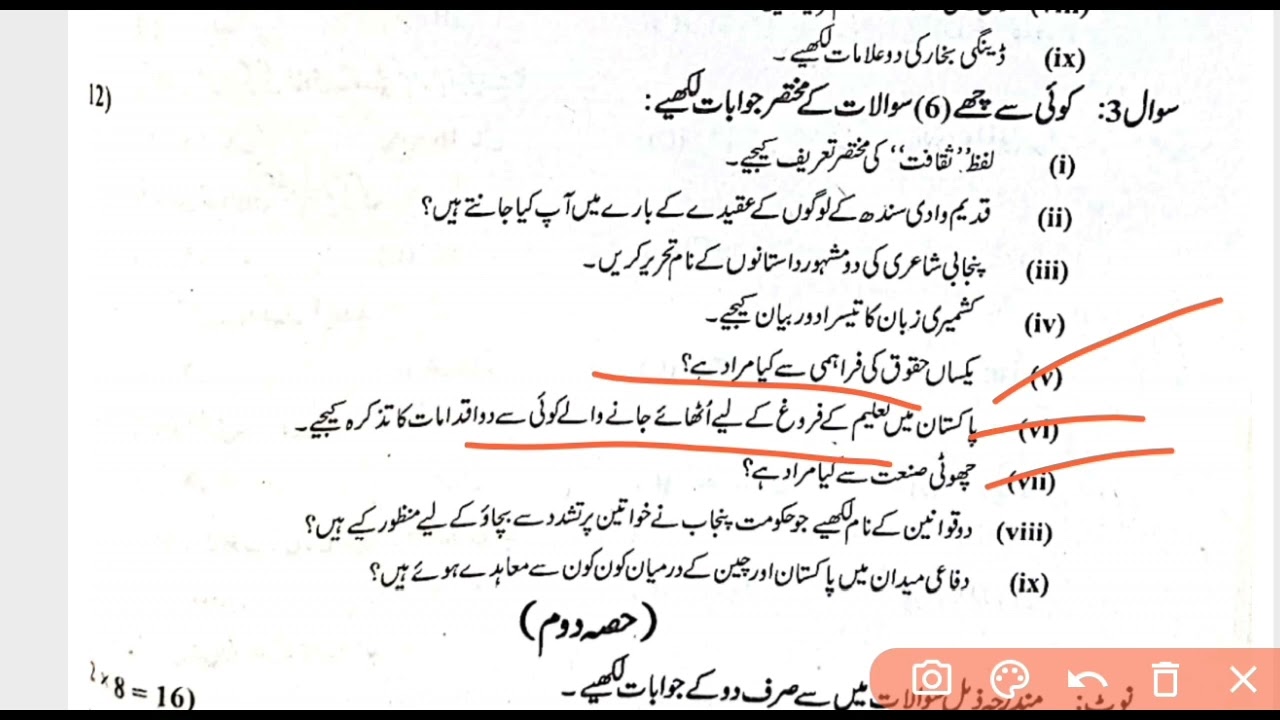 (ix) ڈینگی بخار کی دو علامات لکھیے ۔
سوال 3: کوئی سے چھے (6) سوالات کے مختصر جوابات لکھیے : 12)
(i) لفظ ”ثقافت“ کی مختصر تعریف کیجیے ۔
(ii) قدیم وادی سندھ کے لوگوں کے عقیدے کے بارے میں آپ کیا جانتے ہیں؟
(iii) پنجابی شاعری کی دو مشہور داستانوں کے نام تحریر کریں ۔
(iv) کشمیری زبان کا تیسرا دور بیان کیجیے ۔
(v) یکساں حقوق کی فراہمی سے کیا مراد ہے؟
(vi) پاکستان میں تعلیم کے فروغ کے لیے اُٹھائے جانے والے کوئی سے دو اقدامات کا تذکرہ کیجیے ۔
(vii) چھوٹی صنعت سے کیا مراد ہے؟
(viii) دو قوانین کے نام لکھیے جو حکومت پنجاب نے خواتین پر تشدد سے بچاؤ کے لیے منظور کیے ہیں؟
(ix) دفاعی میدان میں پاکستان اور چین کے درمیان کون کون سے معاہدے ہوئے ہیں؟
(حصہ دوم)
نوٹ: مندرجہ ذیل سوالات میں سے صرف دو کے جوابات لکھیے ۔ 2 × 8 = 16)